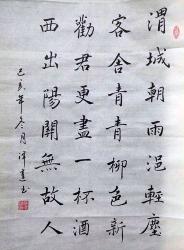 渭城朝雨浥輕塵
客舍青青柳色新
勸君更盡一杯酒
西出陽關無故人
己亥年冬月